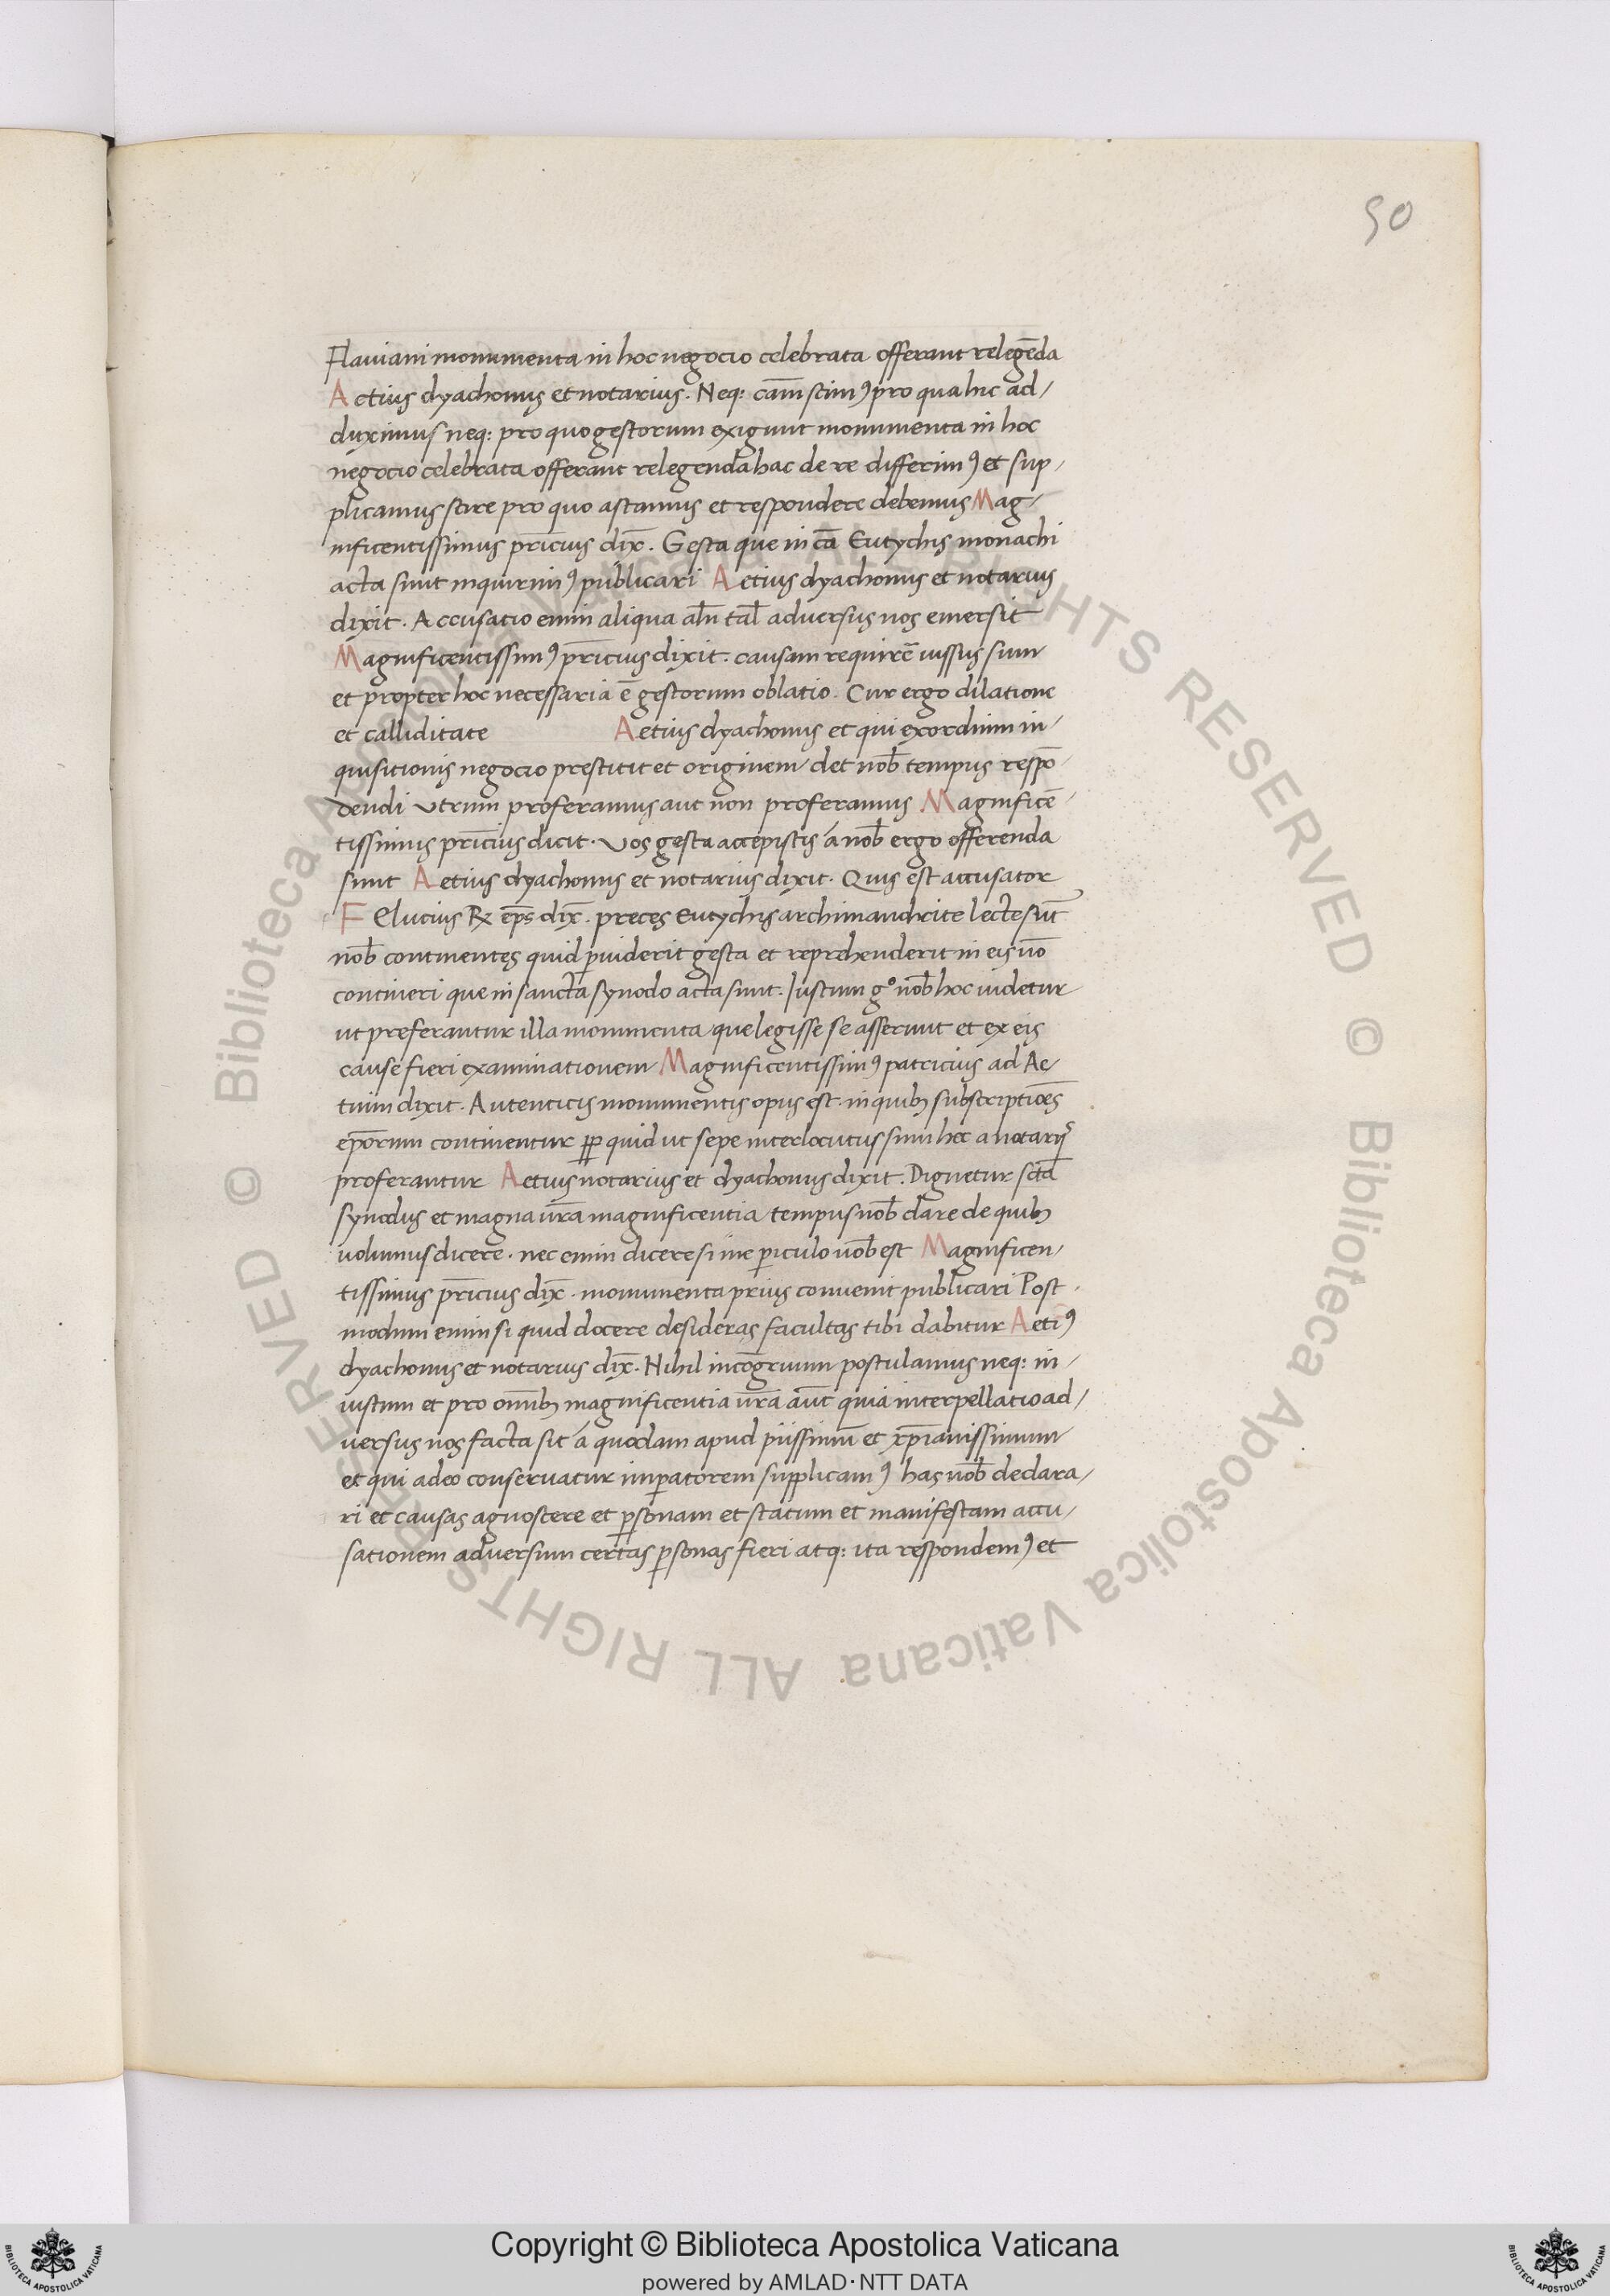 50
Flauiani monumenta in hoc negocio celebrata offerant relegēda
Aetius dyachonus et notarius. Neq: cām scimꝰ pro qua huc ad/
duximus neq: pro quo gestorum exigunt monumenta in hoc
negocio celebrata offerant relegenda hac de re differimꝰ et sup/
plicamus scire pro quo astamus et respondere debemus Mag/
nificentissimus pr̄icius dix̄. Gesta que in cā Eutychis monachi
acta sunt inquirimꝰ publicari Aetius dyachonus et notarius
dixit. Accusatio enim aliqua al̄n tal̄ adversus nos emersit
Magnificentissimꝰ pr̄icius dixit. causam requirē iussus sum
et propter hoc necessaria ē gestorum oblatio. Cur ergo dilatione
et calliditate Aetius dyachonus et qui exordium in/
quisitionis negocio prestitit et originem det nob̄ tempus respō/
dendi utrum proferamus aut non proferamus Magnificē/
tissimus pr̄icius dicit. Vos gesta accepistis á nob̄ ergo offerenda
sunt Aetius dyachonus et notarius dixit. Quis est accusator
FElucius ℞ ep̄s dix̄. preces Eutychis archimandrite lecte sūt
nob̄ continentes quid puiderit gesta et reprehenderit in eis nō
contineri que in sancta synodo acta sunt. Iustum g° nob̄ hoc uidetur
ut preferantur illa monumenta que legisse se asserunt et ex eis
cause fieri examinationem Magnificentissimꝰ patricius ad Ae/
tium dixit. Autenticis monumentis opus est. in quibꝫ subscriptiōes
ep̄orum continentur ꝓp quid ut sepe interlocutus sum hec a notarijs
proferantur Aetius notarius et dyachonus dixit. Dignetur sctā
synodus et magna ur̄a magnificentia tempus nob̄ dare de quibꝫ
uolumus dicere. nec enim dicere sine piculo nob̄ est Magnificen/
tissimus pr̄icius dix̄. monumenta prius conuenit publicari Post
modum enim si quid docere desideras facultas tibi dabitur Aetiꝰ
dyachonus et notarius dix̄. Nihil incōgruum postulamus neq: in/
iustum et pro omībꝫ magnificentia ur̄a aūt quia interpellatio ad/
versus nos facta sit á quodam apud piissimū et xp̄ianissimum
et qui adeo conservatur impatorem supplicamꝰ has nob̄ declara/
ri et causas agnoscere et psonam et statum et manifestam accu/
sationem adversum certas psonas fieri atq: ita respondemꝰ et
© Biblioteca Apostolica Vaticana ALL RIGHTS RESERVED © Biblioteca Apostolica Vaticana ALL RIGHTS RESERVED
BIBLIOTECA APOSTOLICA VATICANA
Copyright © Biblioteca Apostolica Vaticana
powered by AMLAD·NTT DATA
BIBLIOTECA APOSTOLICA VATICANA